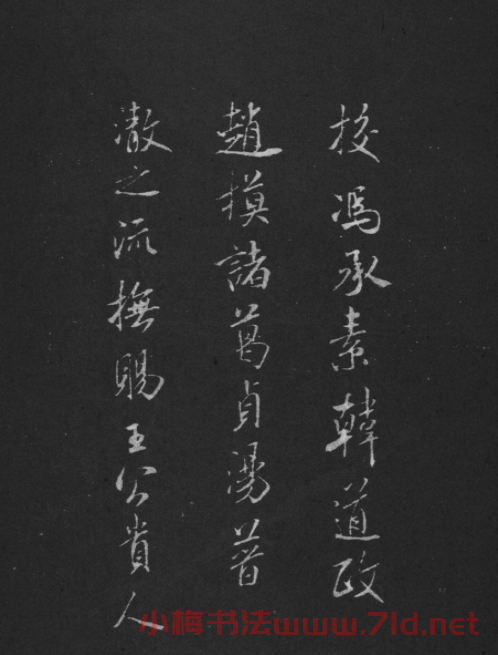 挍馮承素韓道政
趙摸諸葛貞湯普
澈之流撫賜王公貴人
小梅书法www.7ld.net